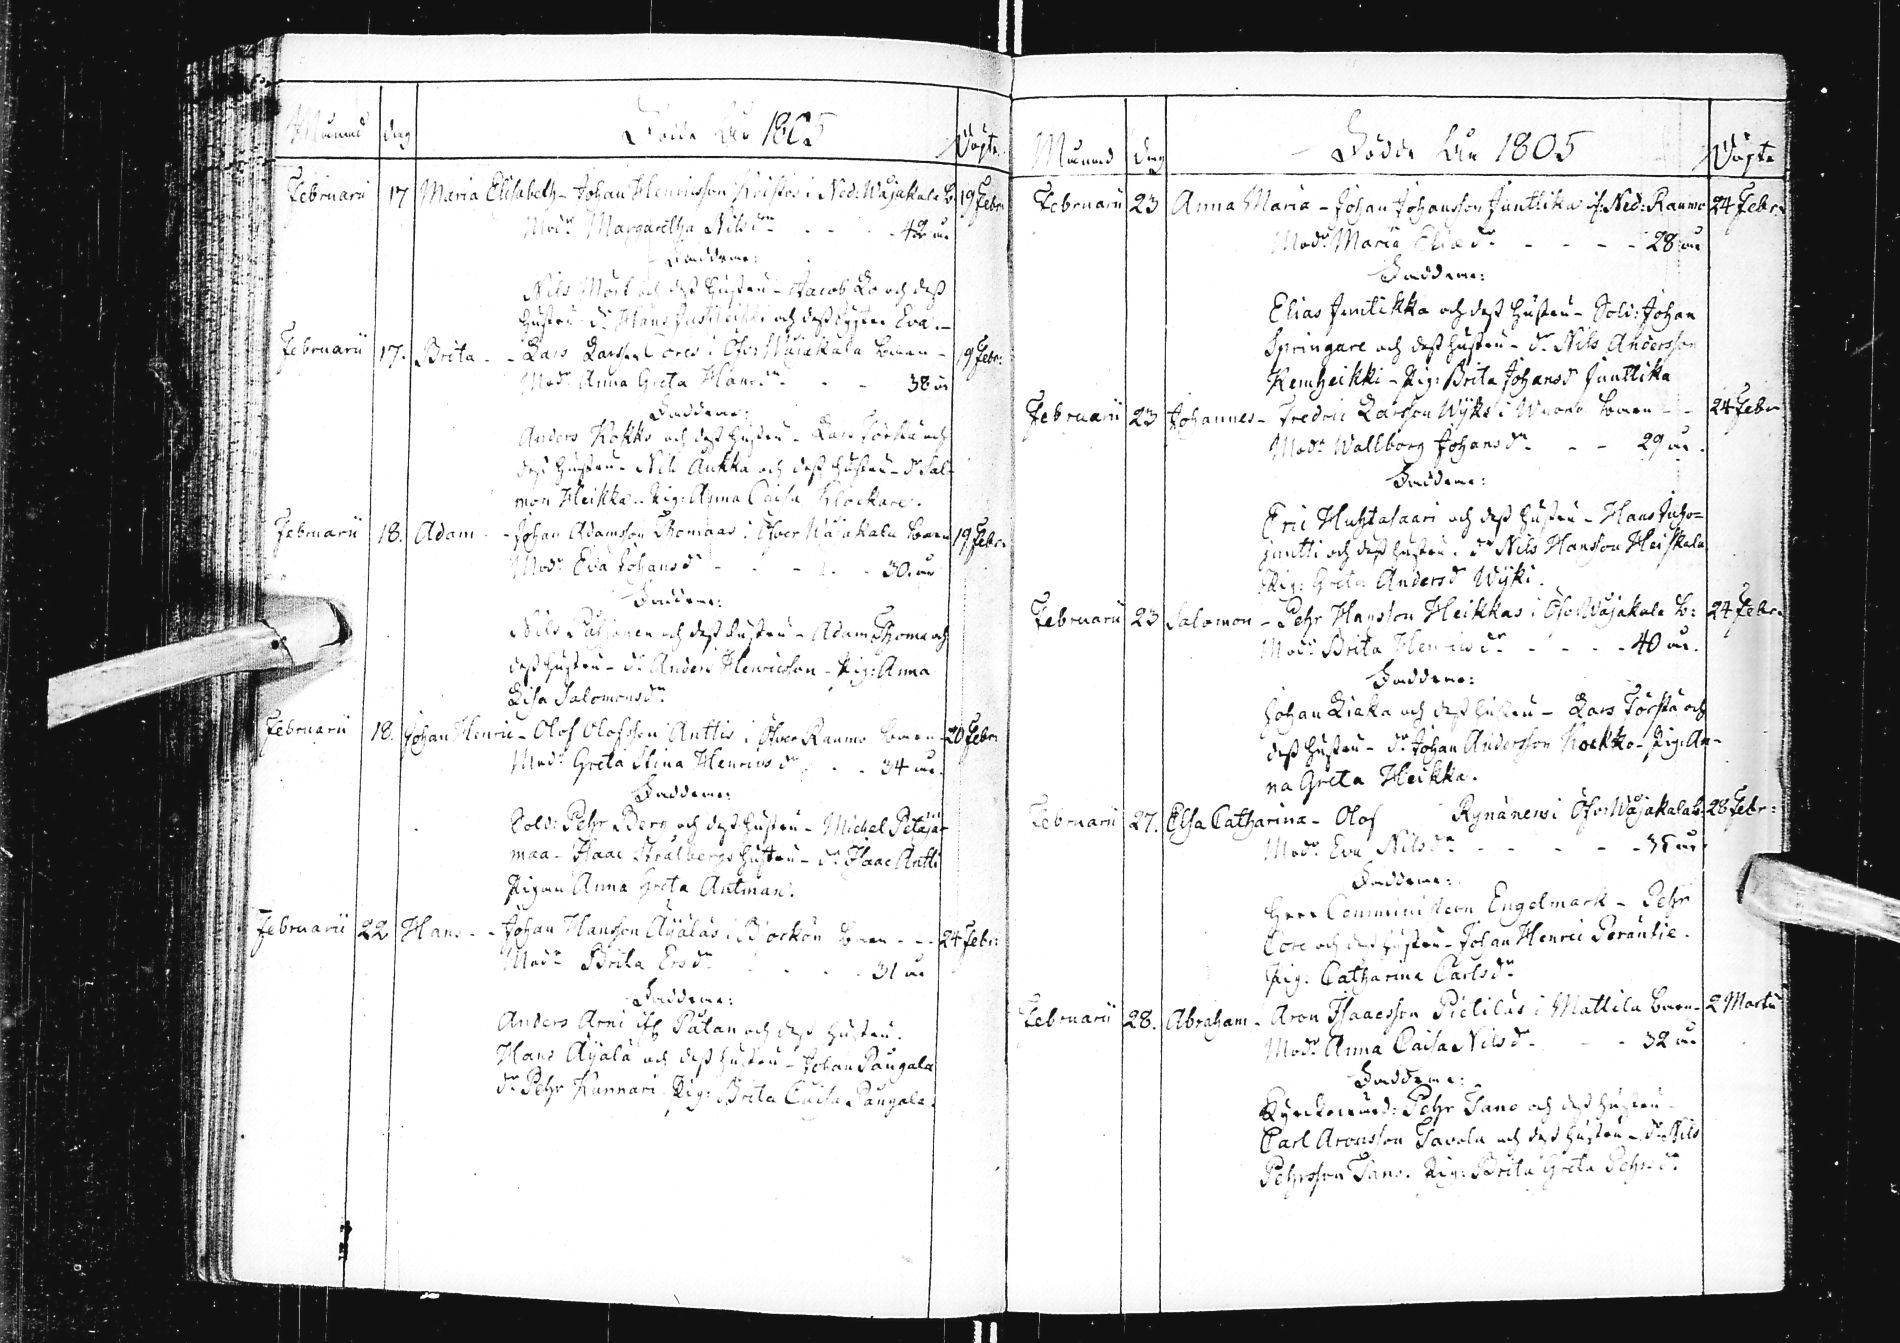 Månad dag Födde År 1805 Döpte
Februarii 17 Maria Elisabeth - Johan Henricsson i Ned: Wåjakala B. 19 Febr.
Modr Margaretha Nilsdr - - - 42 år
Faddrarne:
Nils Mört och dess hustru - Jacob Lo och dess
hustru - dr Hans och dess syster Eva.
Februarii 17. Brita - - Lars Larsson Cores i Öfver Wåjakala barn - 19 Febr.
Modr Anna Greta Hansdr - - 38 år
Faddrarne:
Anders Kokko och dess hustru - Lars Förstå och
dess hustru - Nils Aukka och dess hustru - dr Sal-
mon Heikka - Pig: Anna Caisa Klockare.
Februarii 18. Adam - - Johan Adamsson Thomaas i Öfver Wåjakala barn 19 Febr.
Modr Eva Johansdr - - - 30. år
Faddrarne:
Nils och dess hustru - Adam Thoma och
dess hustru - dr Anders Henricsson - Pig: Anna
Lisa Salomonsdr
Februarii 18. Johan Henric - Olof Olofsson Anttis i Öfver Raumo barn - 20 Febr.
Modr Greta Stina Henricsdr - - 34 år.
Faddrarne:
Sold: Pehr Berg och dess hustru - Michel Petäjä-
maa - Isaac Strålbergs hustru - dr Isaac Antti
Pigan Anna Greta Antman.
Februarii 22 Hans - - Johan Hansson Äyälas i Björkön barn - - 24 Febr:
Modr Brita Ersdr - - - 31 år
Faddrarne:
Anders Arni Palan och dess hustru.
Hans Äyälä och dess hustru - Johan Paugala
dr Pehr Kannari. Pig: Brita Caisa Paugala.
Månad dag Födde År 1805 Döpte
Februarii 23 Anna Maria - Johan Johansson Junttika i Ned: Raumo 24 Febr.
Modr Maria - - - - 28: år
Faddrarne:
Elias Junttikka och dess hustru - Sold: Johan
Springare och dess hustru - dr Nils Andersson
Kemheikki - Pig: Brita Johansdr Junttika
Februarii 23 Johannes - Fredric Larsson Wyks i Wuono barn - - 24 Febr
Modr Wallborg Johansdr - - - 29 år.
Faddrarne:
Eric Huhtasaari och dess hustru - Hans Juho-
juntti och dess hustru. dr Nils Hansson Heiskala
Pig: Greta Andersdr Wyki.
Februarii 23 Salomon - Pehr Hansson Heikkas i Öfv: Wåjakala b: 24 Febr.
Modr Brita Henricsdr - - - - 40 år.
Faddrarne:
Johan Liaka och dess hustru - Lars Förstå och
dess hustru - dr Johan Andersson Kockko - Pig: An-
na Greta Heikka.
Februarii 27. Elsa Catharina - Olof Rynänens i Öfv: Wåjakala b: 28 Febr:
Modr Eva Nilsdr - - - - år
Faddrarne:
Herr Comministern Engelmark - Pehr
Core och dess hustru - Johan Henric
Pig. Catharina Carlsdr
Februarii 28. Abraham - Aron Isaacsson Pietiläs i Mattila barn - 2 Martii
Modr Anna Caisa Nilsdr - - - 32 år
Faddrarne:
Pehr Tano och dess hustru -
Carl Aronsson Tavola och dess hustru - dr Nils
Pehrsson Tano. Pig: Brita Greta Pehrsdr